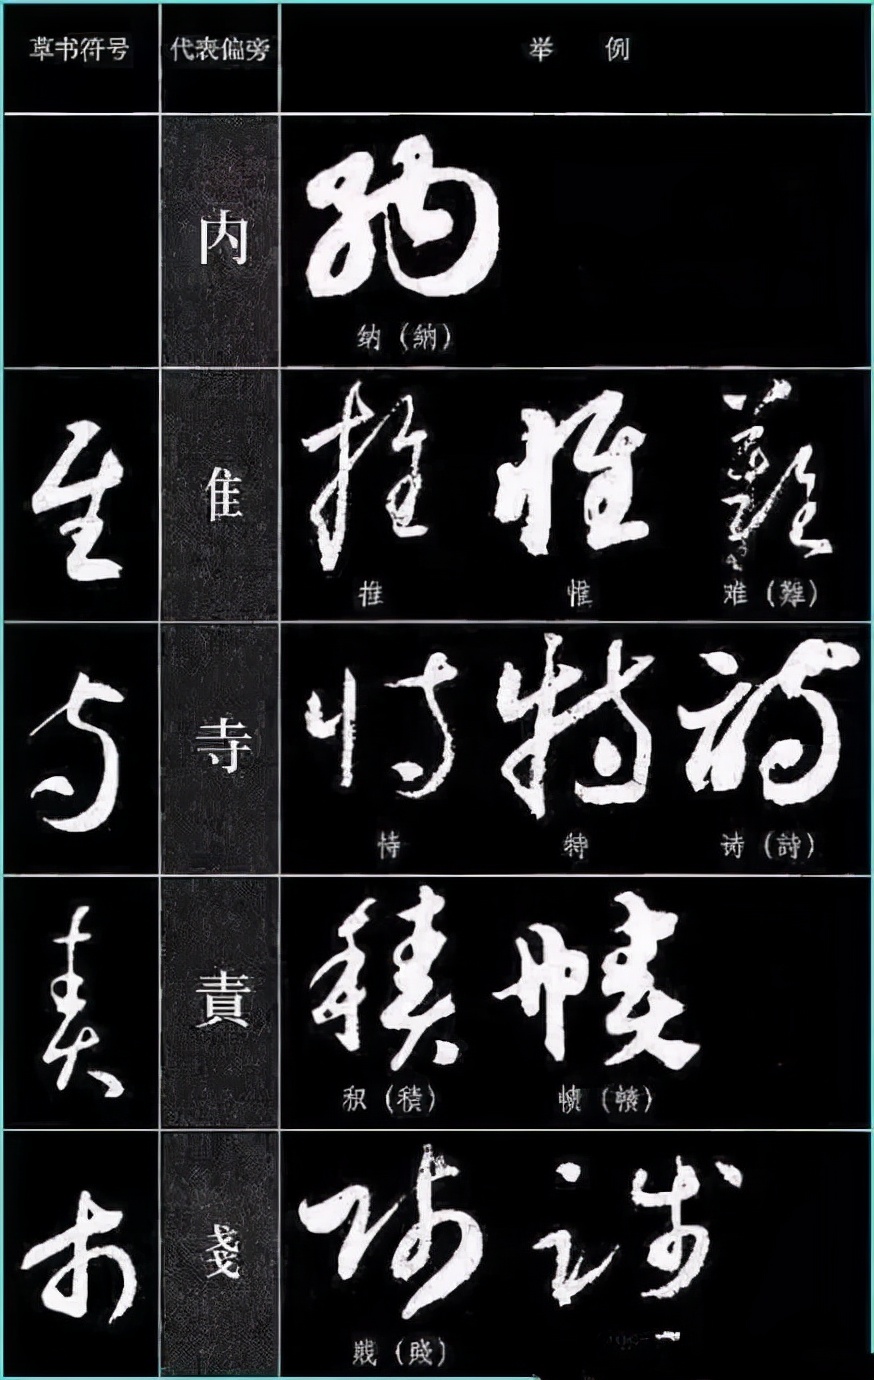 草书符号 代表偏旁 举例
内
纳（納）
隹
推 惟 难（難）
寺
恃 特 诗（詩）
責
积（積） 帻（幘）
戔
贱（賤）